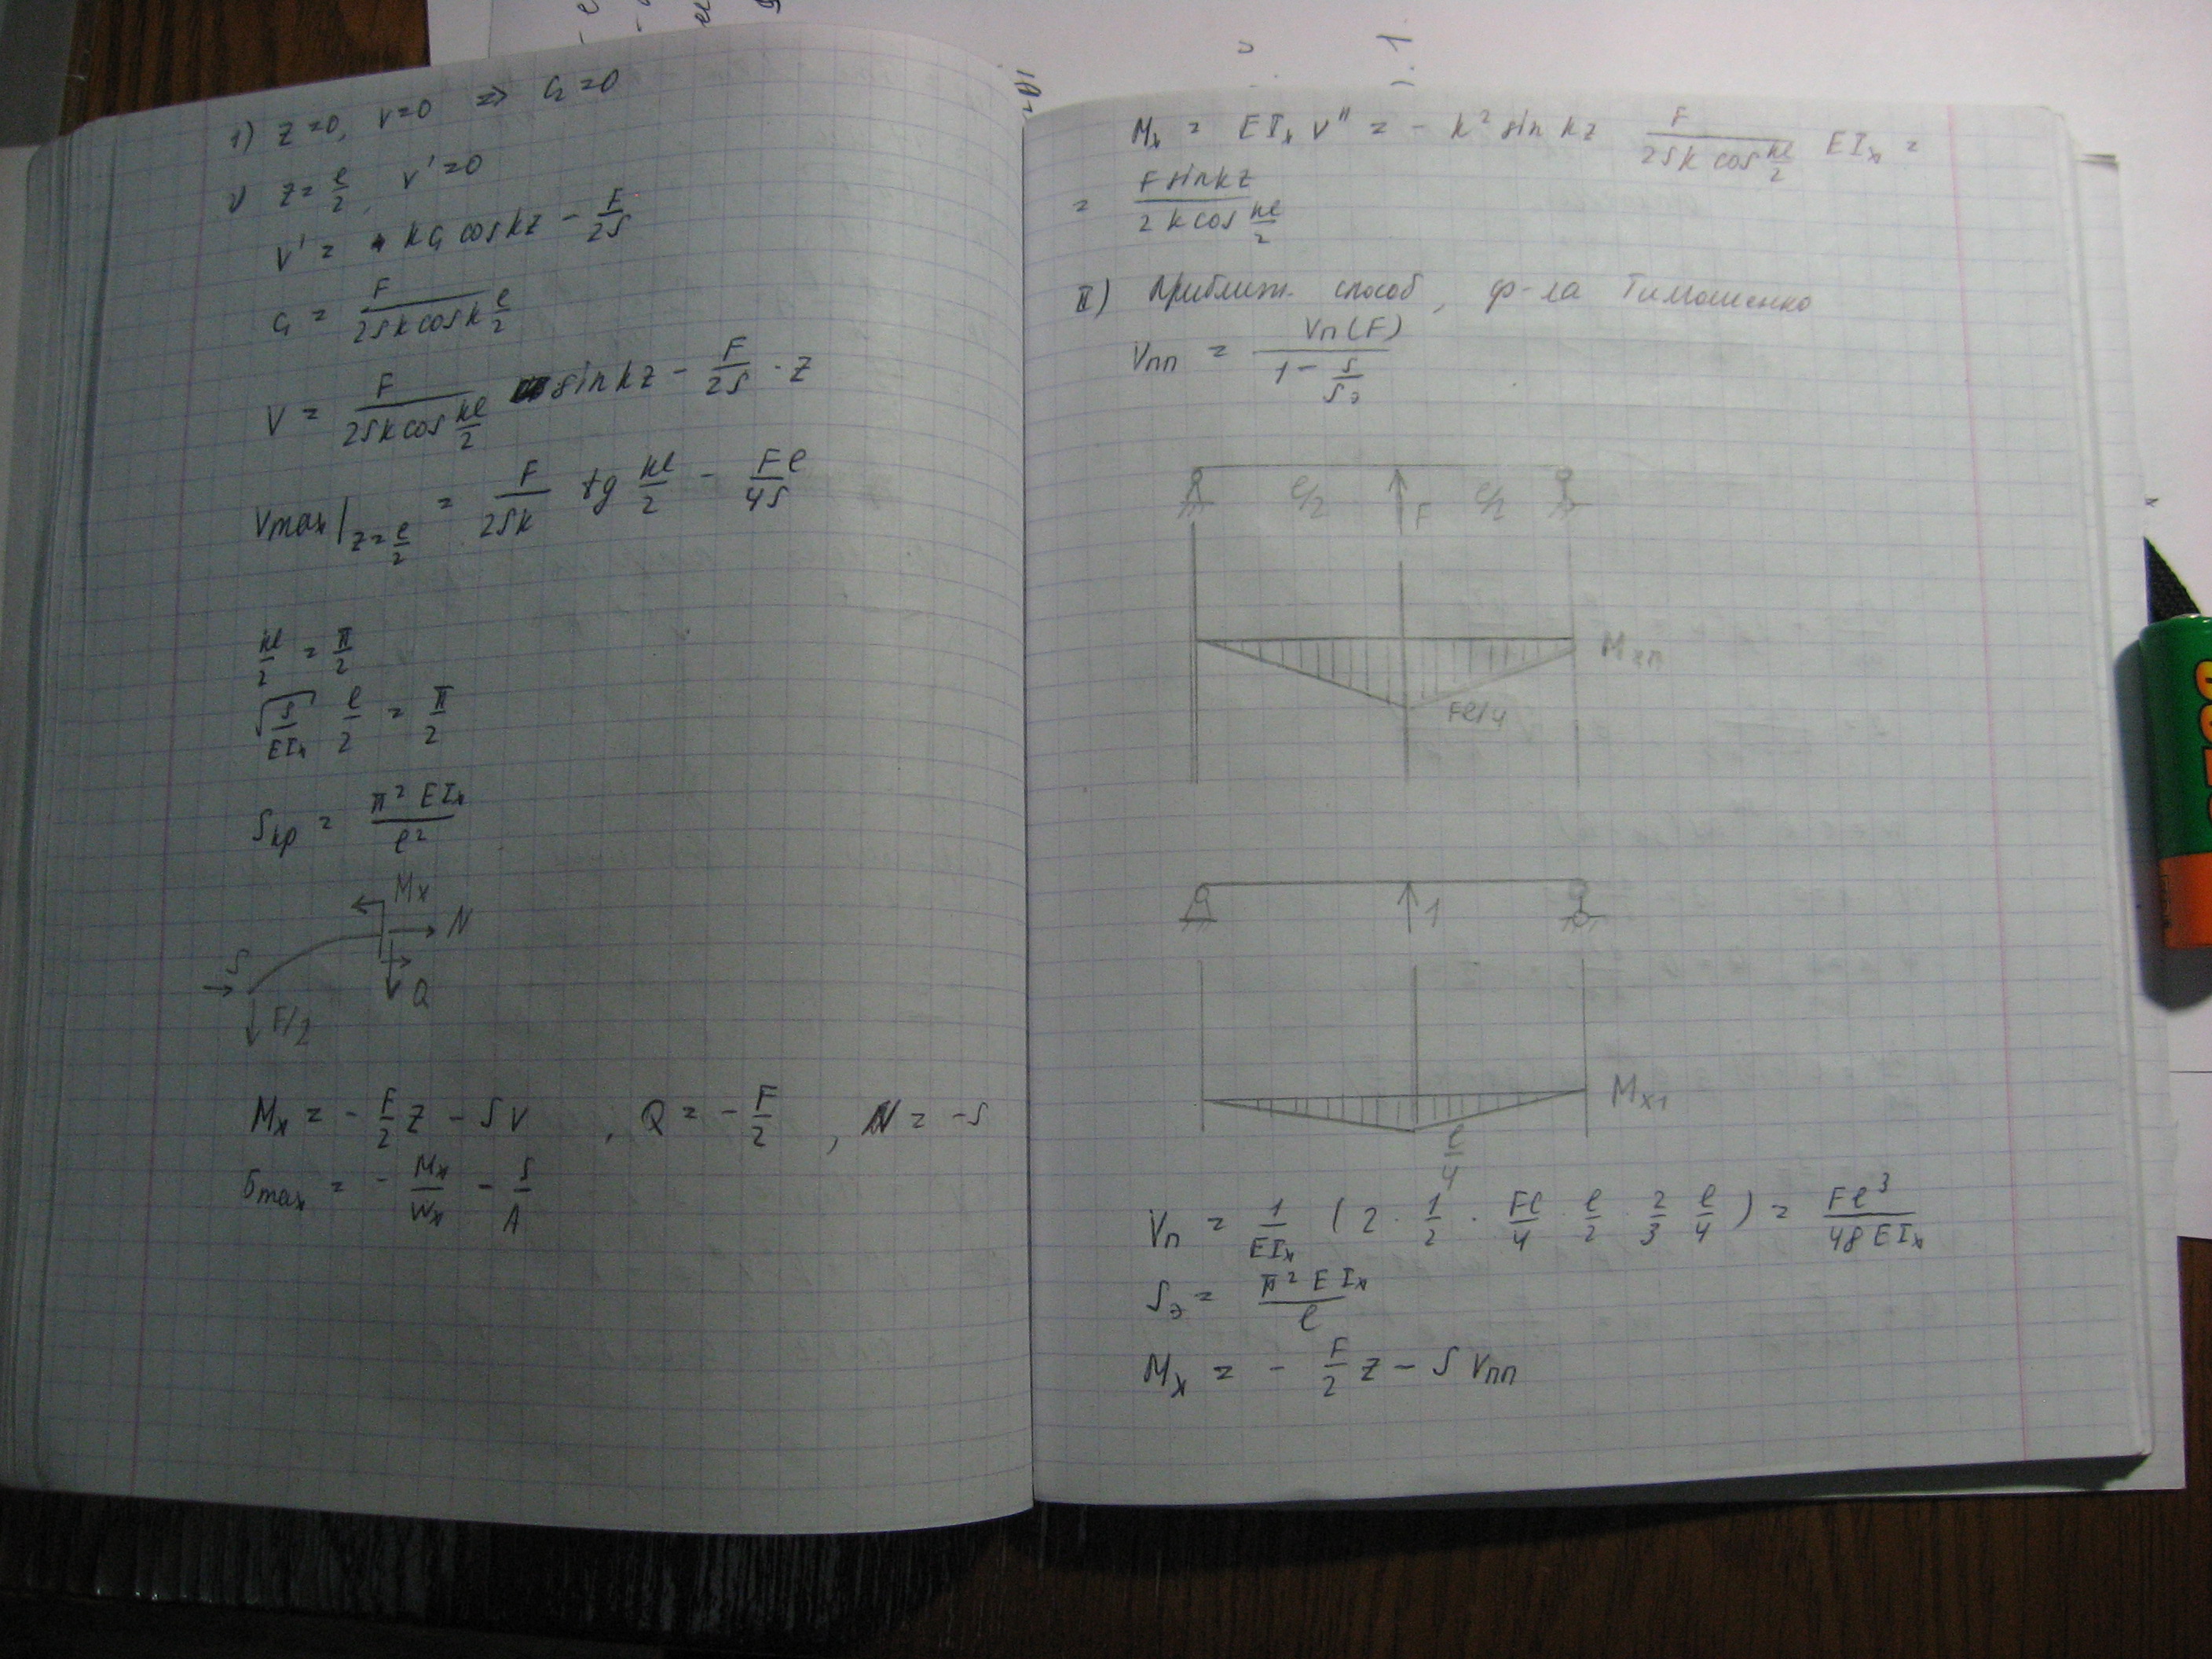 1) z=0, v=0 => C₂=0
2) z=ℓ/2, v'=0
v' = kC₁ cos kz − F/2S
C₁ = F/(2Sk cos k ℓ/2)
v = F/(2Sk cos kℓ/2) sin kz − F/2S · z
Vmax|z=ℓ/2 = F/2Sk tg kℓ/2 − Fℓ/4S
kℓ/2 = π/2
√(S/EIx) ℓ/2 = π/2
Sкр = π² EIx/ℓ²
Mx
N
S
Q
F/2
Mx = − F/2 z − Sv , Q = − F/2 , N = −S
σmax = − Mx/Wx − S/A
Mx = EIx v'' = − k² sin kz F/(2Sk cos kℓ/2) EIx =
= F sin kz/(2k cos kℓ/2)
II) Приближ. способ, ф-ла Тимошенко
Vпп = Vп(F)/(1 − S/Sэ)
ℓ/2 F ℓ/2
Mxп
Fℓ/4
1
Mx1
ℓ/4
Vп = 1/EIx (2 · 1/2 · Fℓ/4 · ℓ/2 · 2/3 ℓ/4) = Fℓ³/48EIx
Sэ = π² EIx/ℓ
Mx = − F/2 z − S Vпп